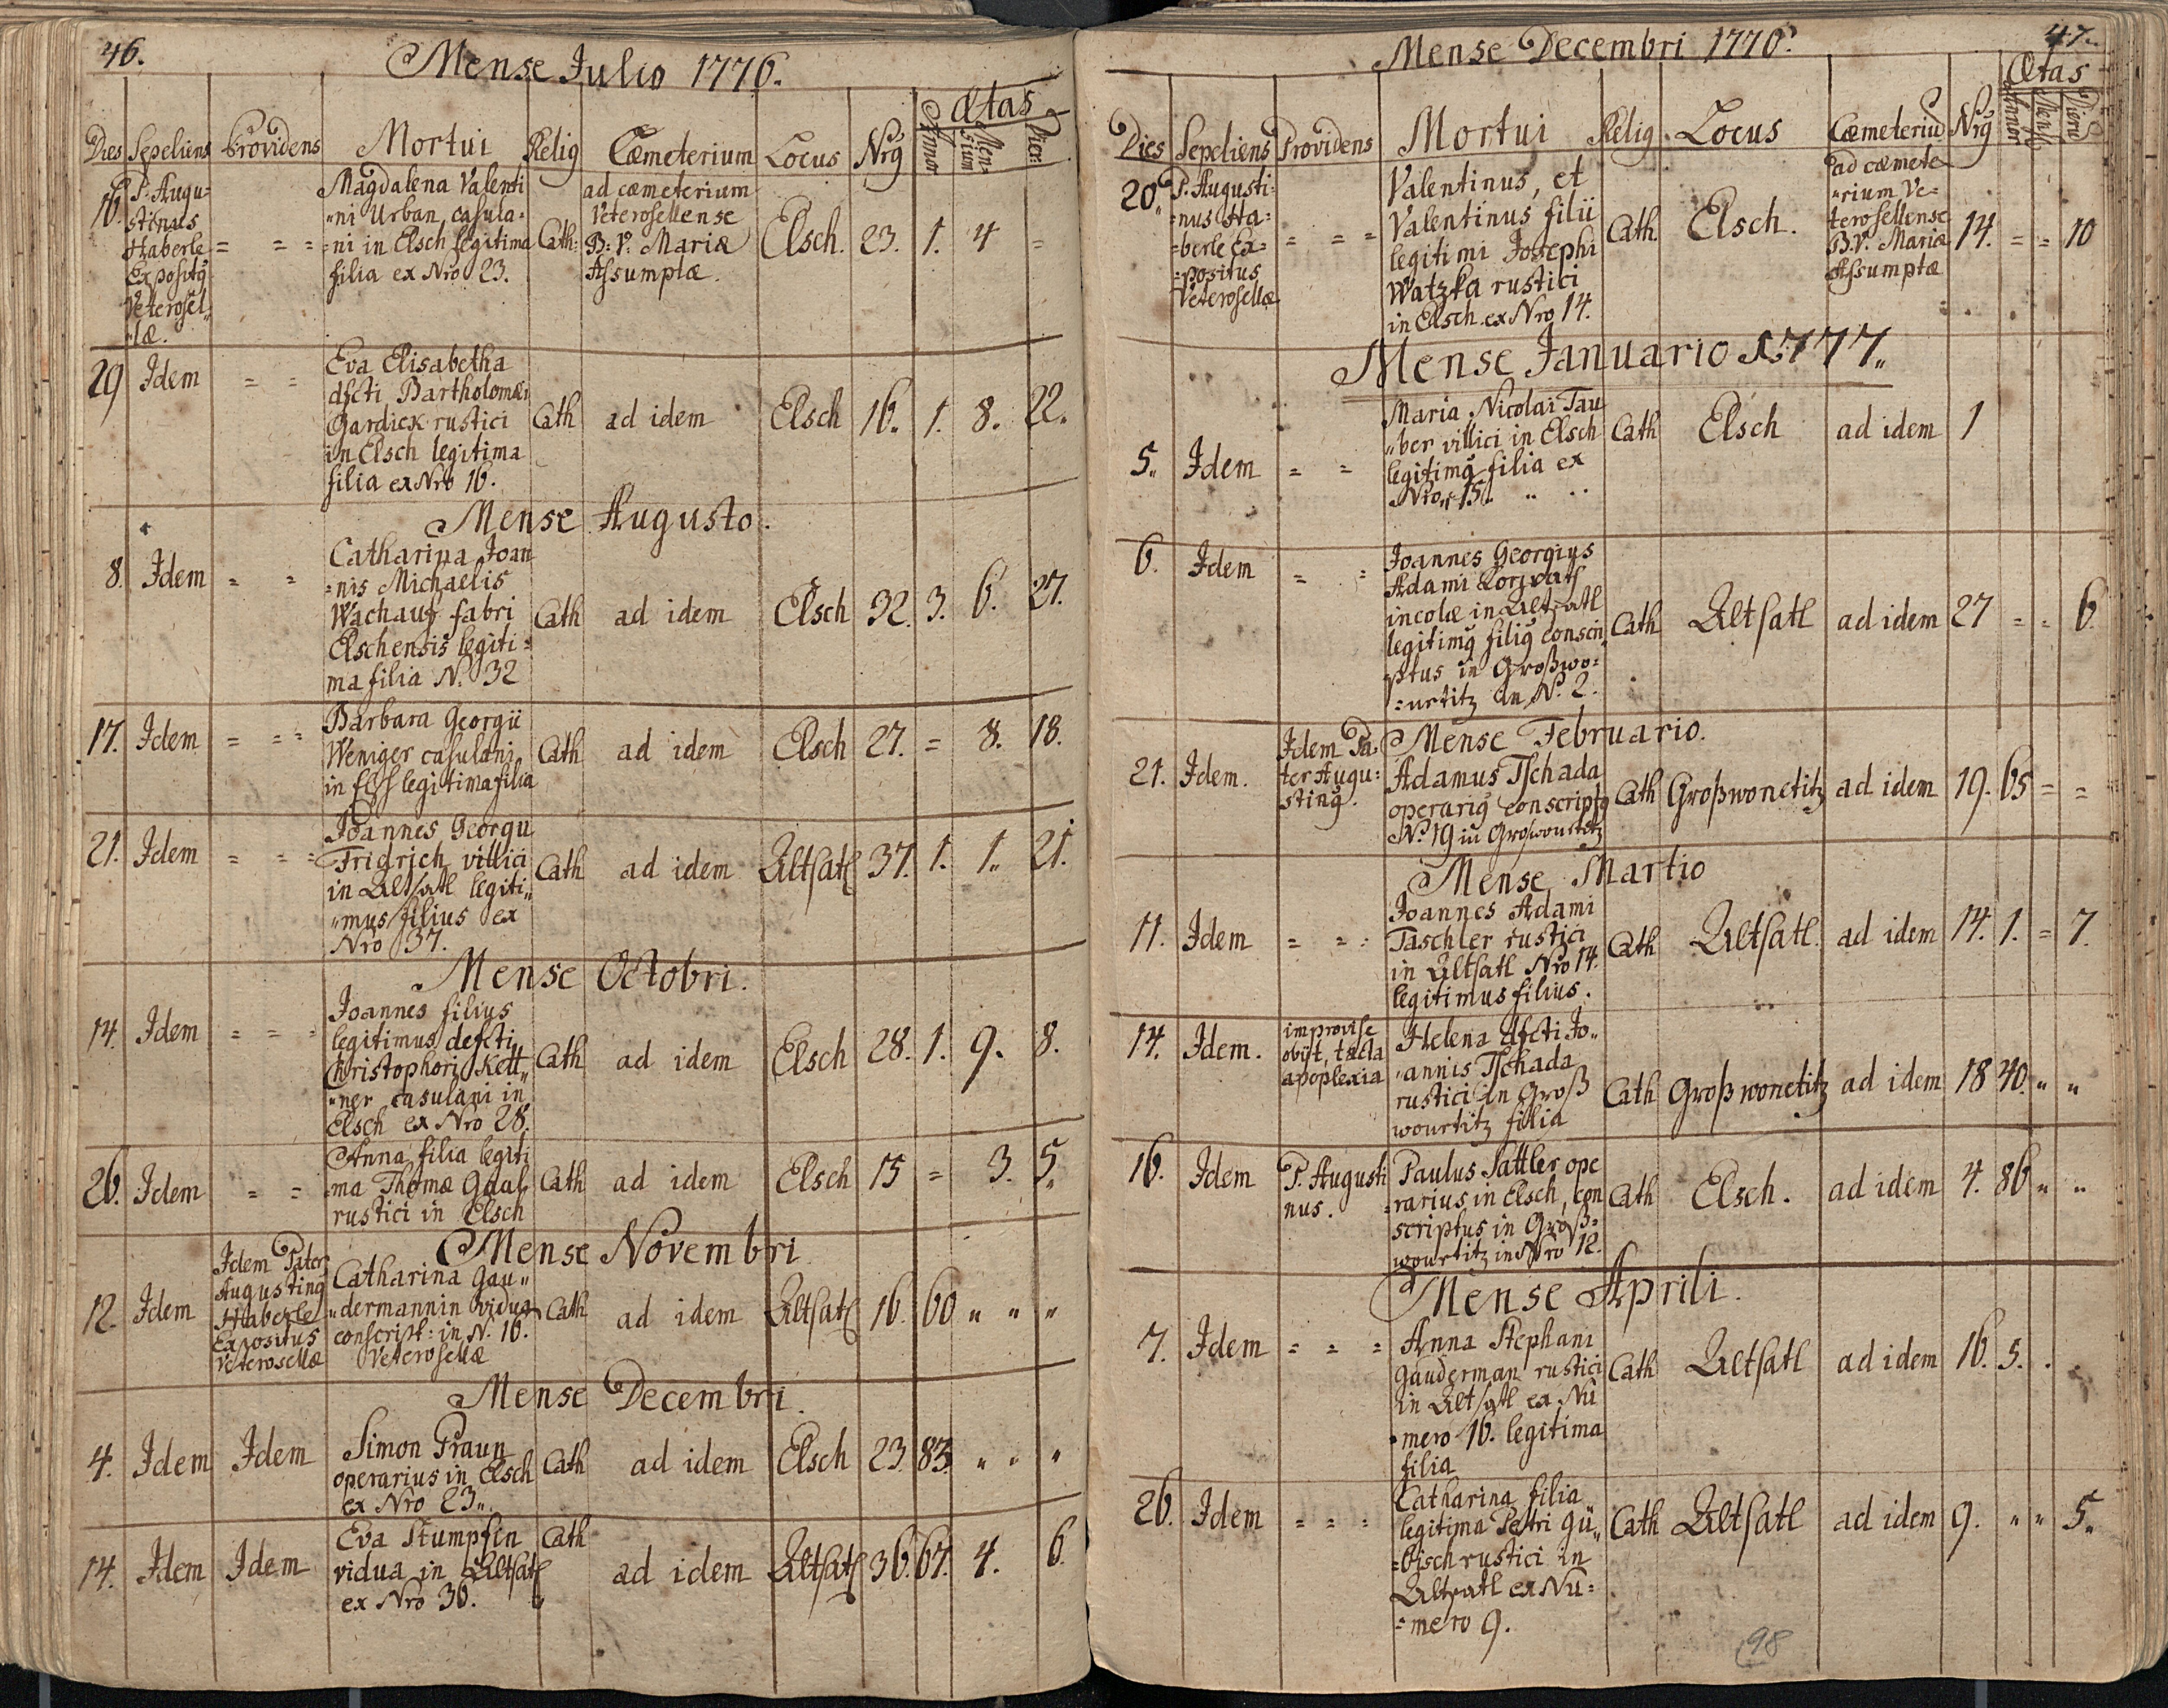 46.
Mense Julio 1776.
Dies Sepeliens Providens Mortui Relig Cœmeterium Locus Nrg Ætas
Annor Mensium Dier:
16. P. Augu= Magdalena Valenti ad cœmeterium
stinus "ni Urban casula= Veterosellense
Haberle = = = =ni in Elsch legitima Cath: B: V. Mariæ Elsch. 23. 1. 4 =
Expositg filia ex Nro 23. Assumptæ.
Veterosel"
"læ.
29 Idem = = Eva Elisabetha
dfcti Bartholomæi
Gardick rustici Cath ad idem Elsch 16. 1. 8. 22.
in Elsch legitima
filia ex Nro 16.
Mense Augusto.
8. Idem = = Catharina Joan
=nis Michaelis
Wachauf fabri Cath ad idem Elsch 32. 3. 6. 27.
Elschensis legiti=
ma filia N. 32
17. Idem = = = Barbara Georgii
Weniger casulani Cath ad idem Elsch 27. = 8. 18.
in Elsch legitima filia
21. Idem = = = Joannes Georgii
Fridrich villici Cath ad idem Altsatl 37. 1. 1. 21.
in Altsatl legiti"
"mus filius ex
Nro 37.
Mense Octobri.
14. Idem = = = Joannes filius
legitimus defcti
Christophori Kett" Cath ad idem Elsch 28. 1. 9. 8.
"ner casulani in
Elsch ex Nro 28.
26. Idem = = Anna filia legiti
=ma Thomæ Gaul Cath ad idem Elsch 15 = 3. 5.
rustici in Elsch
Mense Novembri
12. Idem Idem Pater Catharina Gau"
Augusting "dermannin vidua Cath ad idem Altsatl 16. 60 " " "
Haberle conscript: in N. 16.
Expositus Veterosellæ
Veterosellæ
Mense Decembri.
4. Idem Idem Simon Praun
operarius in Elsch Cath ad idem Elsch 23. 83. " " "
ex Nro 23..
14. Idem Idem Eva Stumpfin Cath
vidua in Altsatl ad idem Altsatl 36. 67. 4. 6.
ex Nro 36.
47.
Mense Decembri 1776.
Dies Sepeliens Providens Mortui Relig. Locus Cœmeteriu Nrg Ætas
Annor Mens Dieru
20. P. Augusti= Valentinus, et ad cœmete
=nus Ha= Valentinus filii "rium Ve=
=berle Ex= = = = legitimi Josephi Cath. Elsch. terosellense 14. = = 10
=positus Watzka rustici B.V. Mariæ
Veterosellæ in Elsch ex Nro 14. Assumptæ
Mense Januario 1777.
5. Idem = = Maria Nicolai Tau
"ber villici in Elsch Cath Elsch ad idem 1
legitimg filia ex
Nro 15.
6. Idem = = Joannes Georgius
Adami
incolæ in Altsatl Cath Altsatl ad idem 27 = = 6.
legitimg filig conscri
ptus in Großwo=
=urtitz in N. 2.
Mense Februario.
21. Idem. Idem Pa" Adamus Tschada
ter Augu= operarig conscriptg Cath Großwonetitz ad idem 19. 65 = =
sting. N. 19 in Großwourtitz
Mense Martio
11. Idem = = = Joannes Adami
Taschler rustici Cath Altsatl. ad idem 14. 1. = 7.
in Altsatl Nro 14.
legitimus filius.
14. Idem. improvise Helena dfcti Jo"
obiit, tacta "annis Tschada
apoplexia rustici in Groß Cath Großwonetitz ad idem 18 40. " "
wourtitz filia
16. Idem P. Augusti Paulus Sattler ope
nus. =rarius in Elsch, con Cath Elsch. ad idem 4. 86 " "
scriptus in Groß=
wourtitz in Nro 12.
Mense Aprili.
7. Idem = = = Anna Stephani
Gauderman rustici Cath Altsatl ad idem 16. 5. .
in Altsatl ex Nu
"mero 16. legitima
filia
26. Idem = = = Catharina filia
legitima Petri Gü" Cath Altsatl ad idem 9. " " 5.
=bisch rustici in
Altsatl ex Nu=
=mero 9.
98